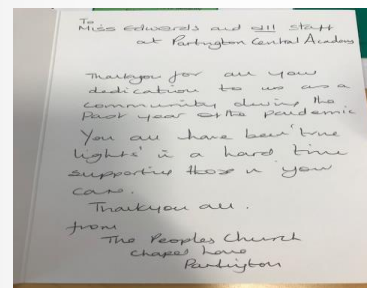 To
Miss Edwards and all staff
at Partington Central Academy
Thankyou for all your
dedication to us as a
community during the
Past year of the pandemic
You all have been 'true
lights' in a hard time
supporting those in your
care.
Thankyou all.
from
The Peoples Church
Chapel Lane
Partington